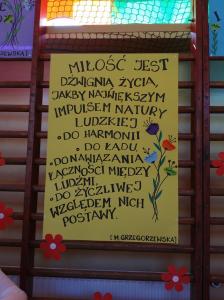 MIŁOŚĆ JEST
DŹWIGNIĄ ŻYCIA,
JAKBY NAJWIĘKSZYM
IMPULSEM NATURY
LUDZKIEJ
• DO HARMONII
• DO ŁADU,
• DO NAWIĄZANIA
ŁĄCZNOŚCI MIĘDZY
LUDŹMI,
• DO ŻYCZLIWEJ
WZGLĘDEM NICH
POSTAWY.
[M. GRZEGORZEWSKA]